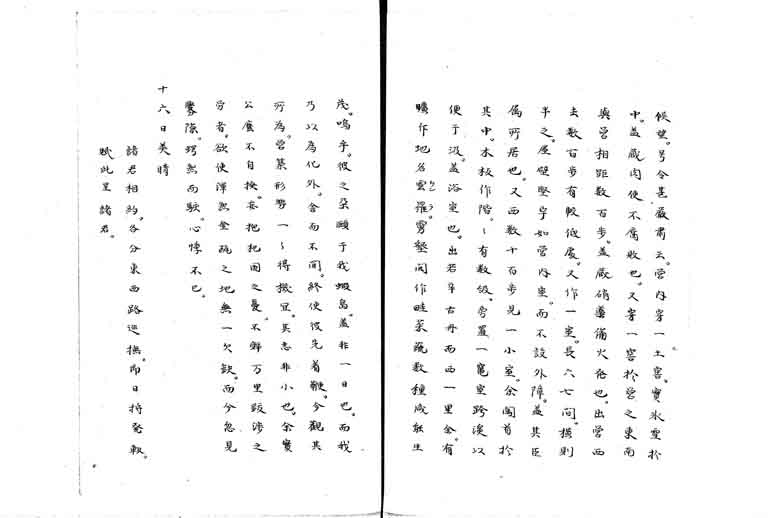 候望。号令甚嚴肅云。營內穿一土窖。實氷雪於
中。蓋藏肉使不腐敗也。又穿一窖於營之東南
與營相距數百步。蓋藏硝藥滿火器也。出營西
去數百步有較低處。又作一室。長六七間。橫則
半之。屋壁堅牢如營內室。而不設外障。蓋其臣
屬所居也。又西數十百步見一小室。余闖首於
其中。木板作階。〻有數級。旁置一竈。室跨溪以
便于汲。蓋浴室也。出若半古丹而西一里余。有
曠作地名雲羅。雪墾開作畦菜蔬數種咸能生
茂。嗚乎。彼之朶頤于我蝦島。蓋非一日也。而我
乃以為化外。舍而不問。終使彼先着鞭。今觀其
所為。營築形勢一〻得機宜。其志非小也。余實
公麼不自揆。妄抱杞國之憂。不辭万里跋涉之
勞者。欲使渾然金甌之地無一欠缺。而今忽見
釁隙。愕然而駭。心悸不已。
十六日美晴
諸君相約。各分東西路巡撫。即日將發軔。
賦此呈諸君。